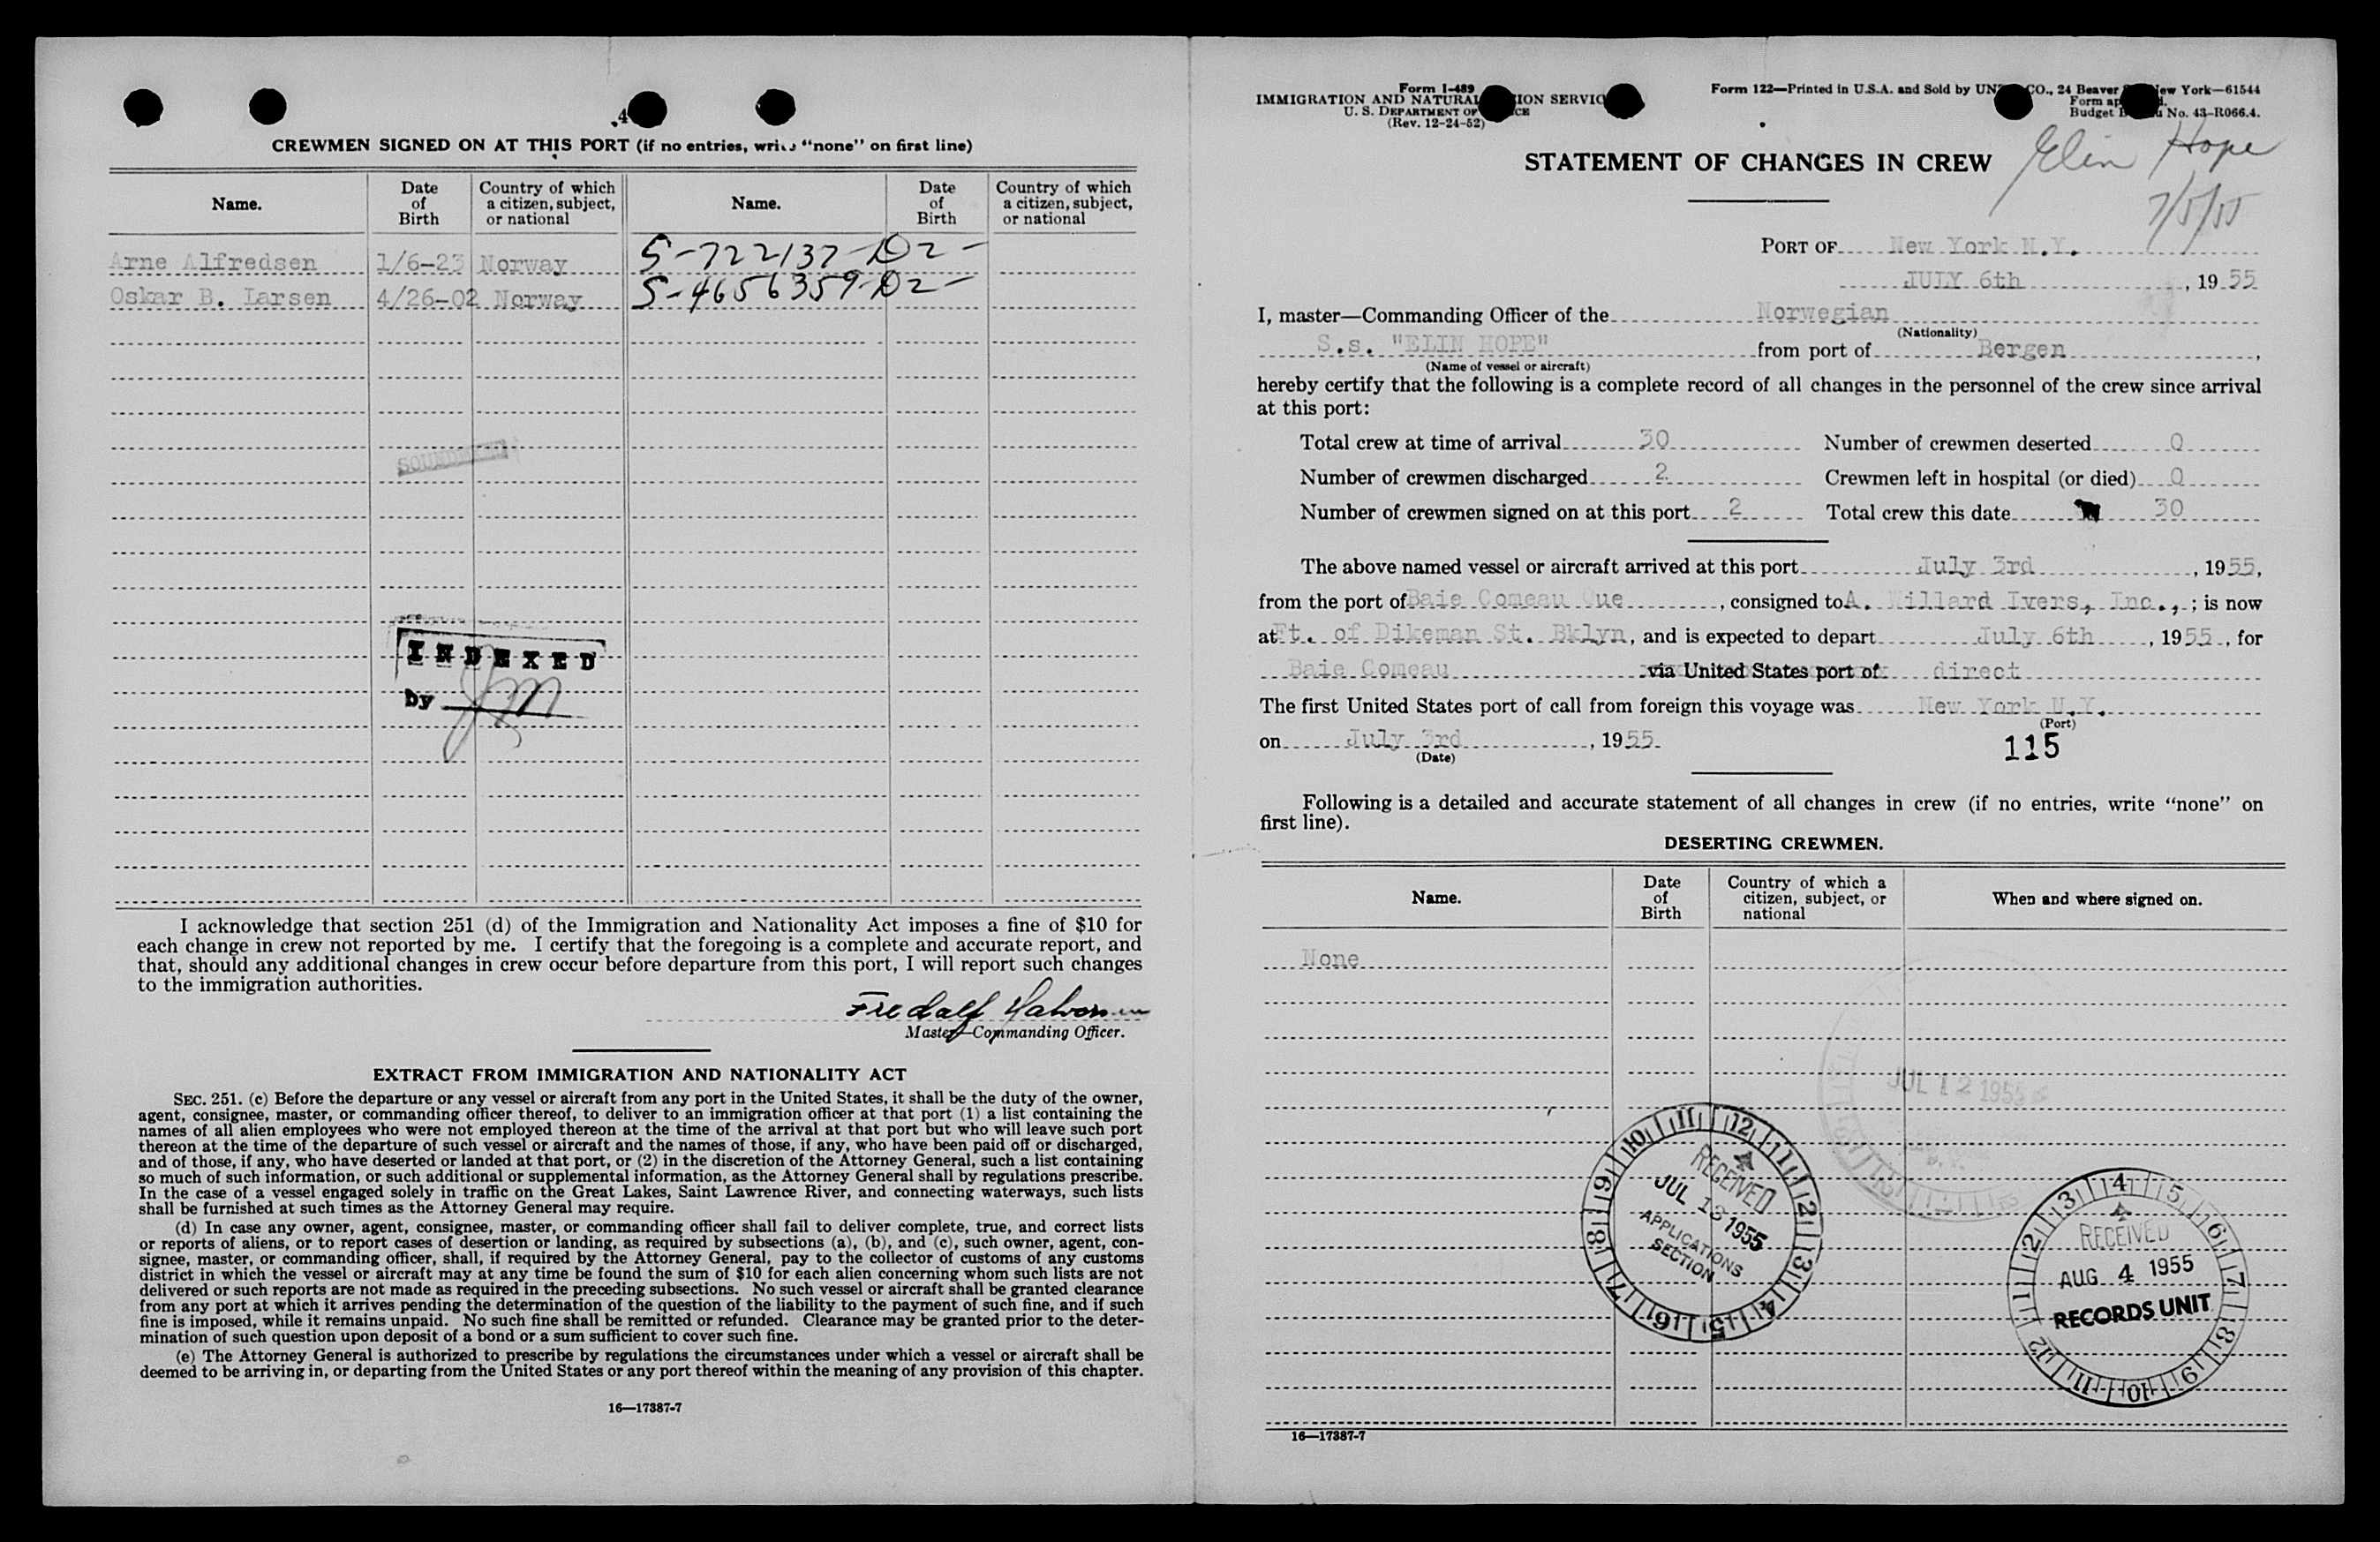 4
CREWMEN SIGNED ON AT THIS PORT (if no entries, write "none" on first line)
Name. Date of Birth Country of which a citizen, subject, or national Name. Date of Birth Country of which a citizen, subject, or national
Arne Alfredsen 1/6-23 Norway S-722137-D2-
Oskar B. Larsen 4/26-02 Norway S-4656359-D2-
SOUNDEXED
INDEXED
by JM
I acknowledge that section 251 (d) of the Immigration and Nationality Act imposes a fine of $10 for
each change in crew not reported by me. I certify that the foregoing is a complete and accurate report, and
that, should any additional changes in crew occur before departure from this port, I will report such changes
to the immigration authorities.
Fredalf Halvorsen
Master—Commanding Officer.
EXTRACT FROM IMMIGRATION AND NATIONALITY ACT
SEC. 251. (c) Before the departure or any vessel or aircraft from any port in the United States, it shall be the duty of the owner,
agent, consignee, master, or commanding officer thereof, to deliver to an immigration officer at that port (1) a list containing the
names of all alien employees who were not employed thereon at the time of the arrival at that port but who will leave such port
thereon at the time of the departure of such vessel or aircraft and the names of those, if any, who have been paid off or discharged,
and of those, if any, who have deserted or landed at that port, or (2) in the discretion of the Attorney General, such a list containing
so much of such information, or such additional or supplemental information, as the Attorney General shall by regulations prescribe.
In the case of a vessel engaged solely in traffic on the Great Lakes, Saint Lawrence River, and connecting waterways, such lists
shall be furnished at such times as the Attorney General may require.
(d) In case any owner, agent, consignee, master, or commanding officer shall fail to deliver complete, true, and correct lists
or reports of aliens, or to report cases of desertion or landing, as required by subsections (a), (b), and (c), such owner, agent, con-
signee, master, or commanding officer, shall, if required by the Attorney General, pay to the collector of customs of any customs
district in which the vessel or aircraft may at any time be found the sum of $10 for each alien concerning whom such lists are not
delivered or such reports are not made as required in the preceding subsections. No such vessel or aircraft shall be granted clearance
from any port at which it arrives pending the determination of the question of the liability to the payment of such fine, and if such
fine is imposed, while it remains unpaid. No such fine shall be remitted or refunded. Clearance may be granted prior to the deter-
mination of such question upon deposit of a bond or a sum sufficient to cover such fine.
(e) The Attorney General is authorized to prescribe by regulations the circumstances under which a vessel or aircraft shall be
deemed to be arriving in, or departing from the United States or any port thereof within the meaning of any provision of this chapter.
16—17387-7
Form I-489
IMMIGRATION AND NATURALIZATION SERVICE
U. S. DEPARTMENT OF JUSTICE
(Rev. 12-24-52)
Form 122—Printed in U.S.A. and Sold by CO., 24 Beaver New York—61544
Form
Budget No. 43-R066.4.
STATEMENT OF CHANGES IN CREW
Elin Hope
7/5/55
PORT OF New York N.Y.
JULY 6th, 1955
I, master—Commanding Officer of the Norwegian
(Nationality)
S.s. "ELIN HOPE" from port of Bergen,
(Name of vessel or aircraft)
hereby certify that the following is a complete record of all changes in the personnel of the crew since arrival
at this port:
Total crew at time of arrival 30 Number of crewmen deserted 0
Number of crewmen discharged 2 Crewmen left in hospital (or died) 0
Number of crewmen signed on at this port 2 Total crew this date 30
The above named vessel or aircraft arrived at this port July 3rd, 1955,
from the port of Baie Comeau Que, consigned to A. Willard Ivers, Inc., ; is now
at Ft. of Dikeman St. Bklyn, and is expected to depart July 6th, 1955, for
Baie Comeau via United States port of direct
The first United States port of call from foreign this voyage was New York N.Y.
(Port)
on July 3rd, 1955
(Date)
115
Following is a detailed and accurate statement of all changes in crew (if no entries, write "none" on
first line).
DESERTING CREWMEN.
Name. Date of Birth Country of which a citizen, subject, or national When and where signed on.
None
JUL 12 1955
11 12 1 2 3 4 5 6 7 8 9 10
RECEIVED
JUL 13 1955
APPLICATIONS
SECTION
4 5 6 7 8 9 10 11 12 1 2 3
RECEIVED
AUG 4 1955
RECORDS UNIT
16—17387-7